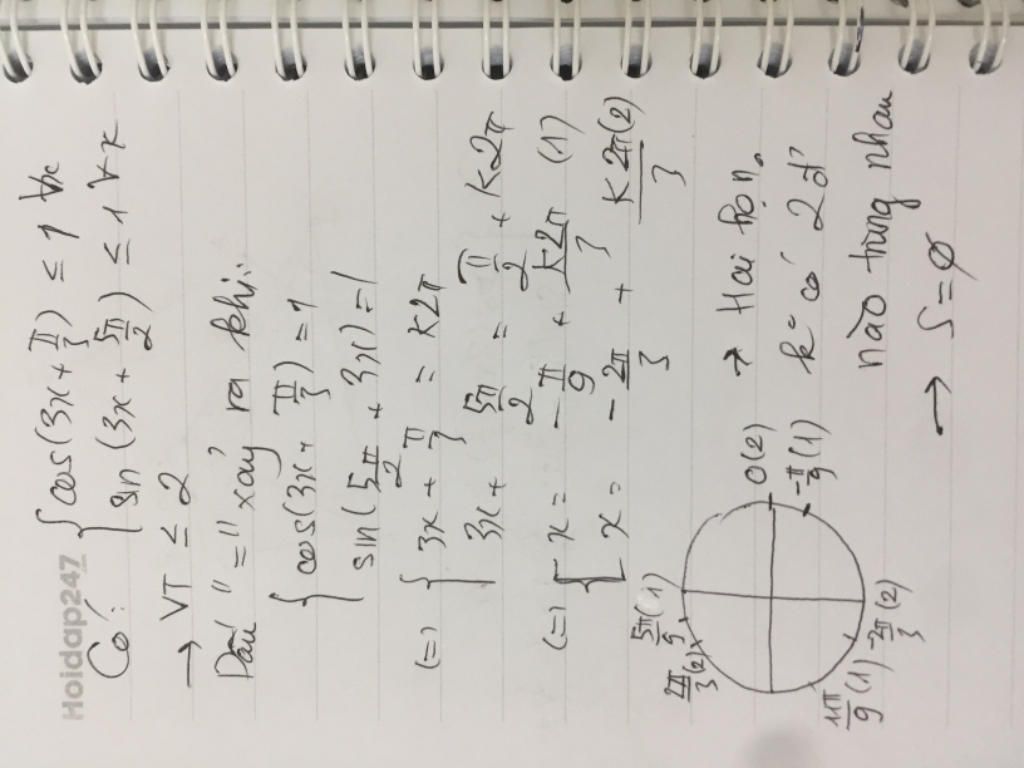 Hoidap247
Có: { cos(3x + π/3) ≤ 1 ∀x
sin(3x + 5π/2) ≤ 1 ∀x
→ VT ≤ 2
Dấu "=" xảy ra khi:
{ cos(3x + π/3) = 1
sin(5π/2 + 3x) = 1
(=) { 3x + π/3 = k2π
3x + 5π/2 = π/2 + k2π
(=) { x = -π/9 + k2π/3 (1)
x = -2π/3 + k2π/3 (2)
5π/9 (1)
2π/3 (2)
0 (2)
-π/9 (1)
11π/9 (1)
-2π/3 (2)
→ Hai họ n₀
k° có 2 đ'
nào trùng nhau
→ S = ∅